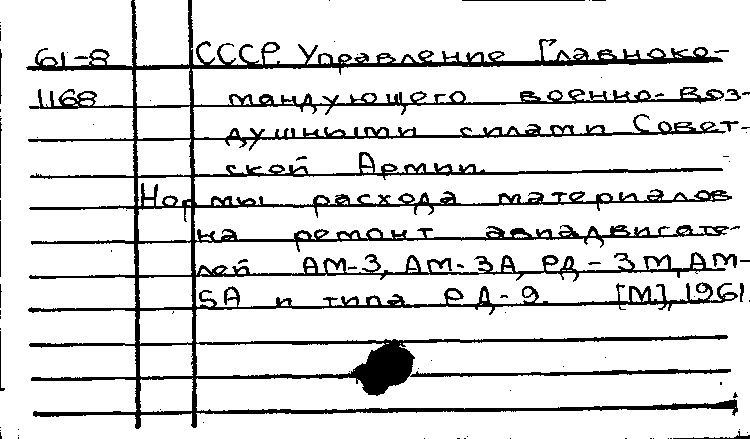 61-8 СССР. Управление Главноко-
1168 мандующего военно-воз-
душными силами Совет-
ской Армии.
Нормы расхода материалов
на ремонт авиадвигате-
лей АМ-3, АМ-3А, РД-3М, АМ-
5А и типа РД-9. [М], 1961.